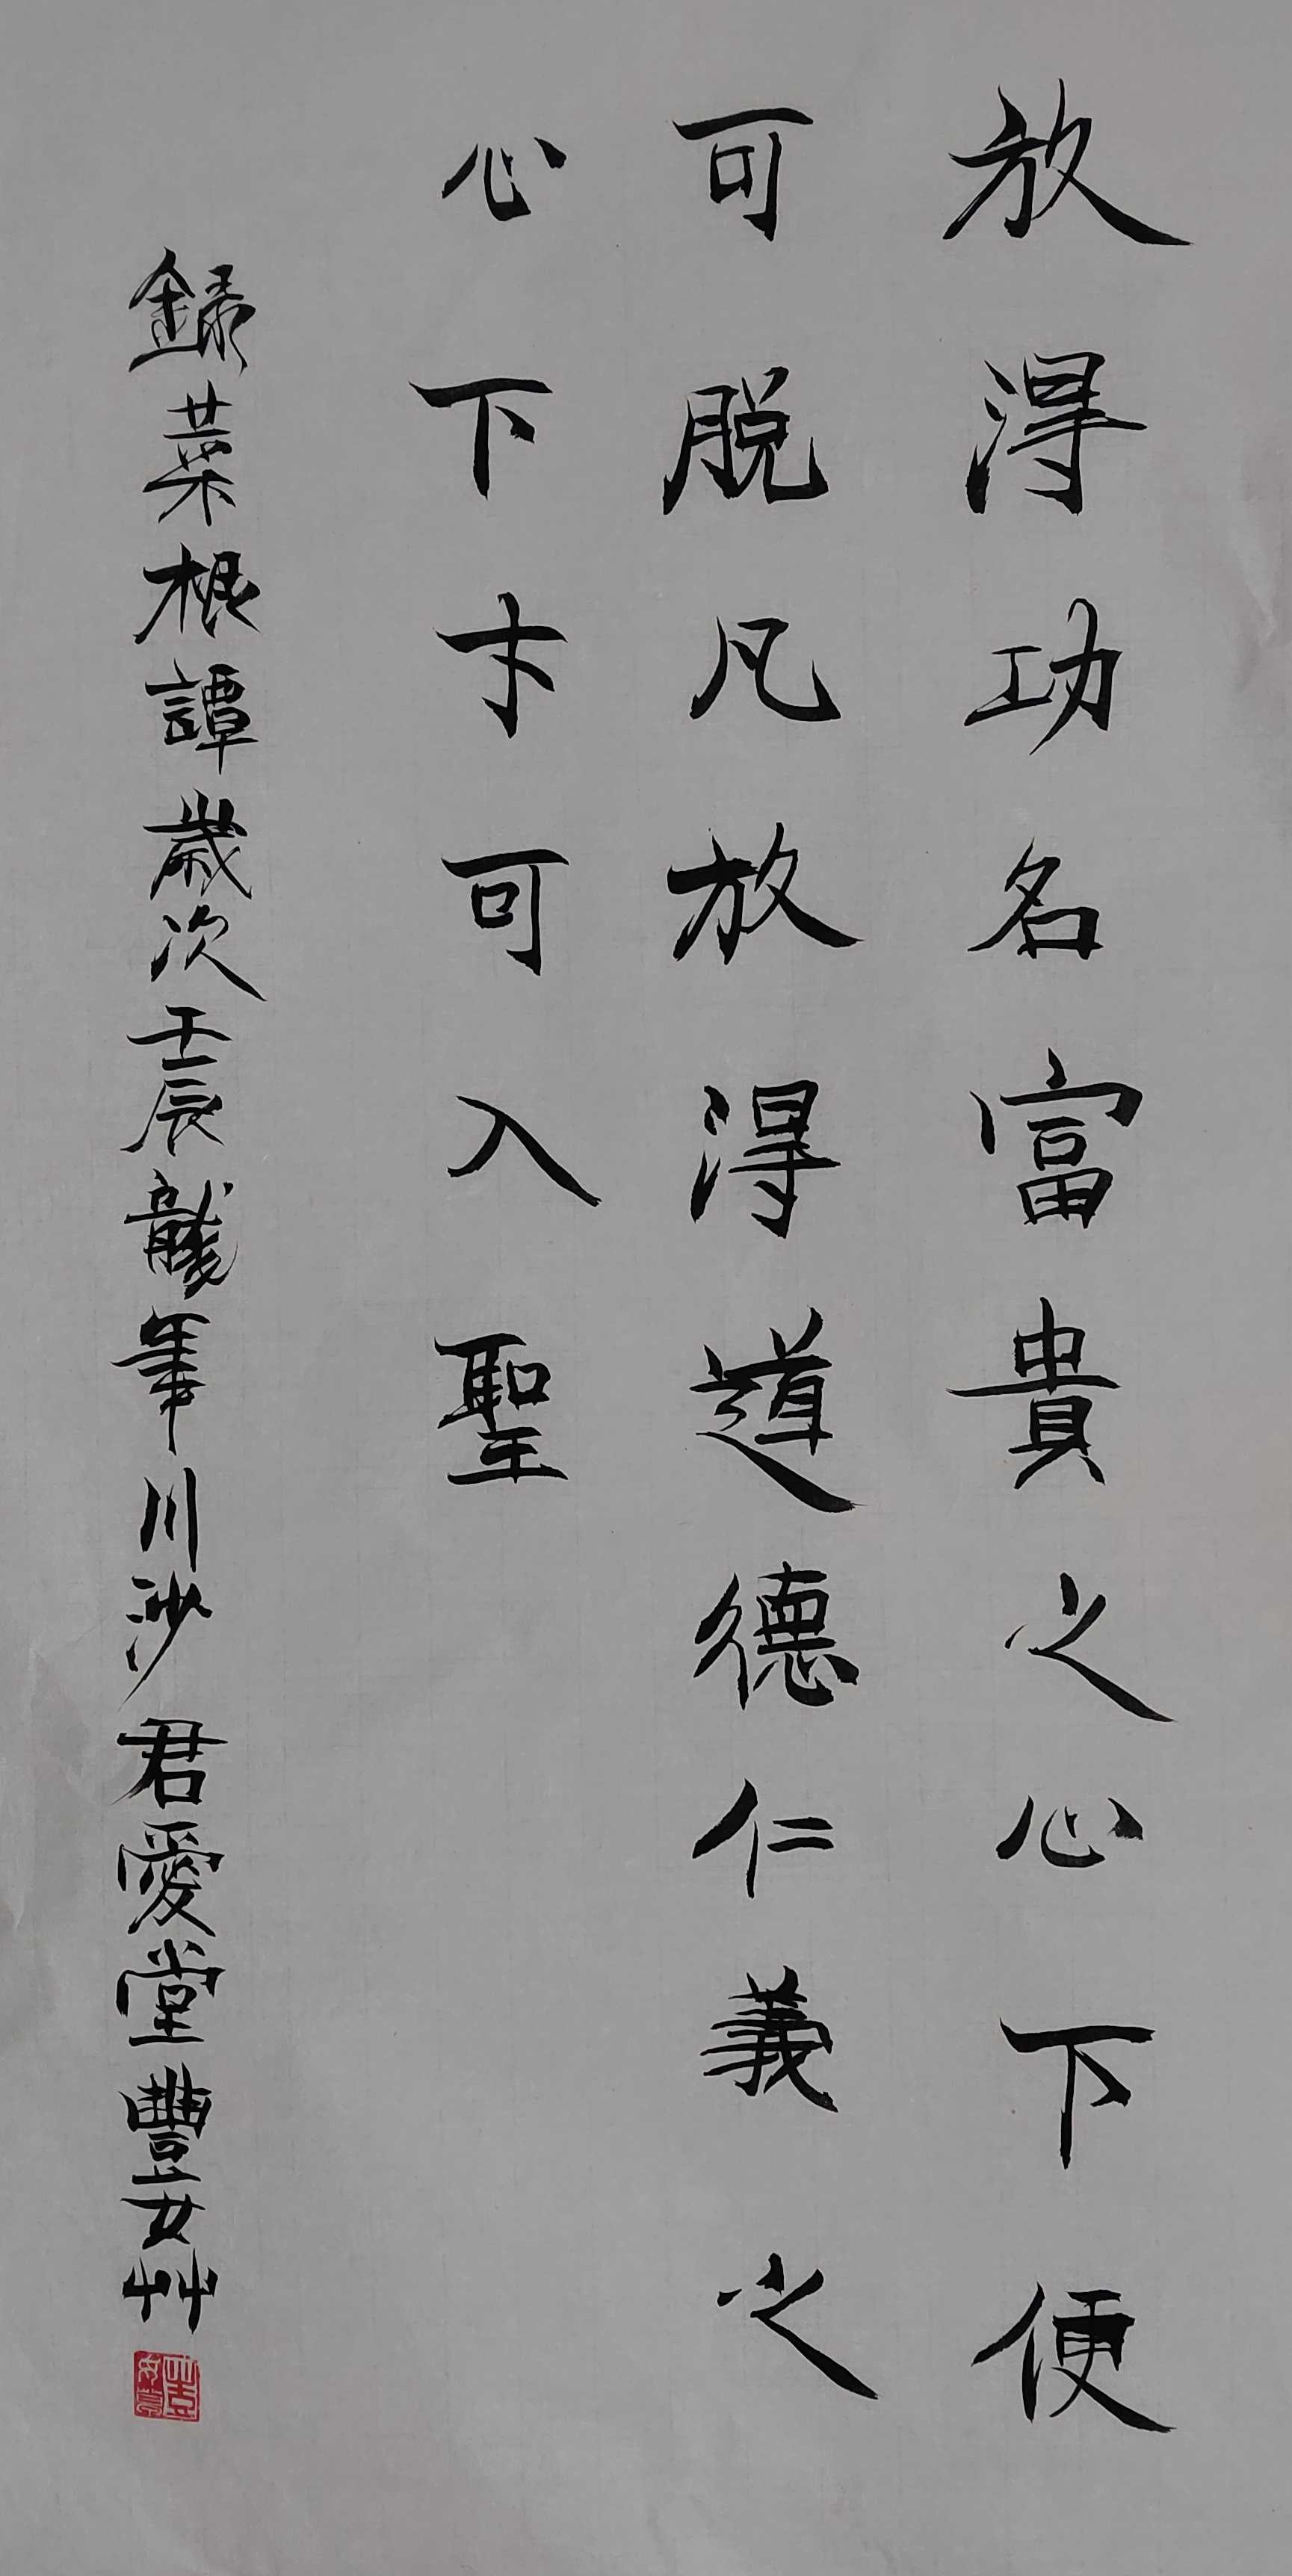 放得功名富貴之心下便
可脱凡放得道德仁義之
心下卞可入聖
録菜根譚歲次壬辰龍年川沙君愛堂豐女艸